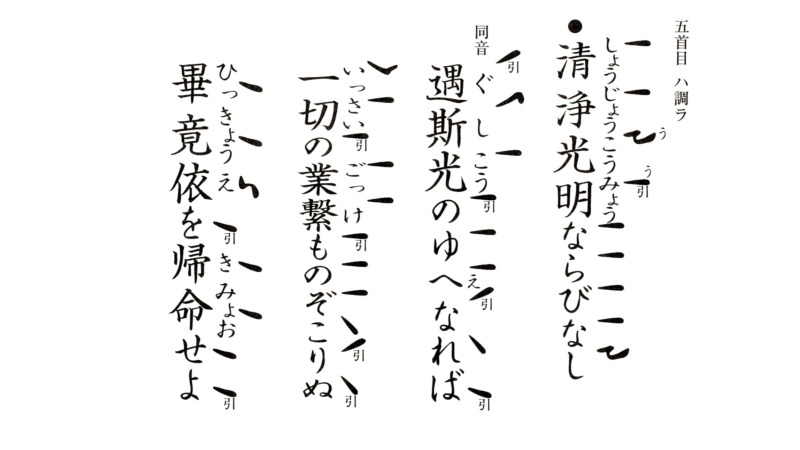 五首目 ハ調ラ
清浄光明ならびなし
しょうじょうこうみょう
う
う
引
同音
遇斯光のゆへなれば
ぐしこう
え
引
引
引
引
一切の業繋ものぞこりぬ
いっさい
ごっけ
引
引
引
引
畢竟依を帰命せよ
ひっきょうえ
きみょお
引
引